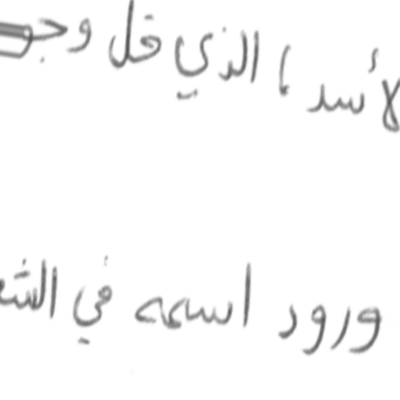 لأسد، الذي قل وجو
ورود اسمه في الشع